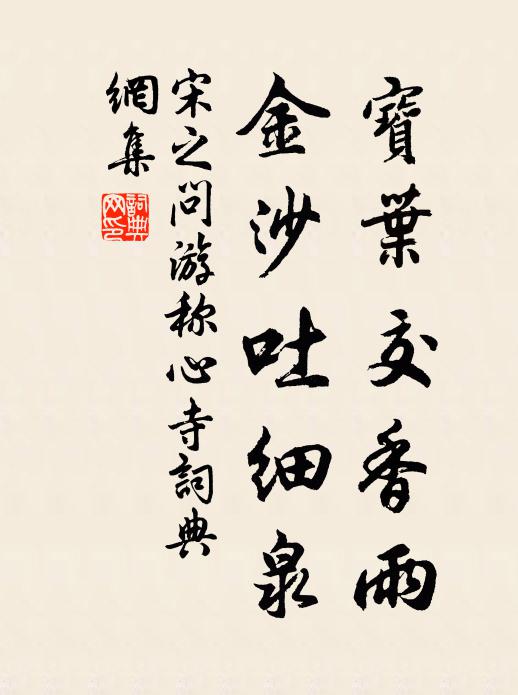 寶葉交香雨
金沙吐细泉
宋之问游称心寺詞典
網集
詞典
网印